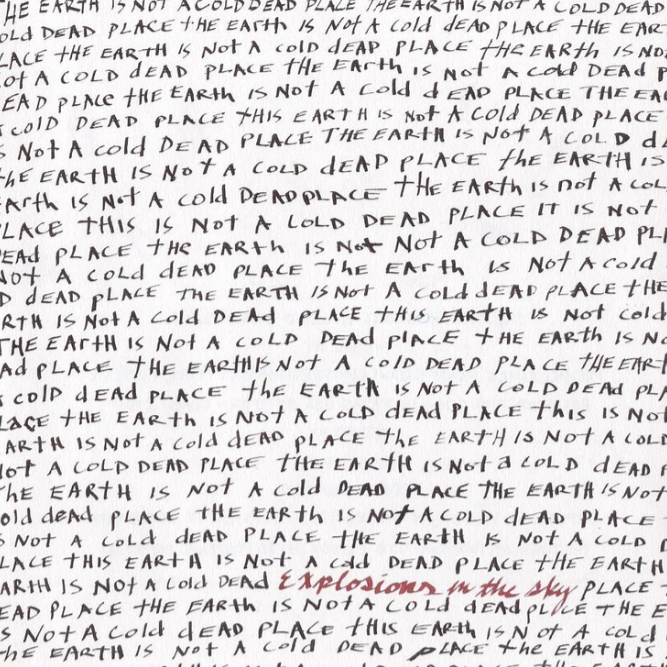 THE EARTH IS NOT A COLD DEAD PLACE THE EARTH IS NOT A COLD DEAD
OLD DEAD PLACE tHE EARth IS Not A cold dEAD PLACE tHE EAR
LACE tHE EARTH IS Not A cold dEAD PLACE tHE EARtH IS NO
ot A COLD dEAD PLACE tHE EArth is Not A cold DEAD P
EAD PLAce tHE EArtH iS Not A Cold dEAD PLACE THE EA
cOlD DEAD PLACE tHIS EARTH IS Not A Cold DEAD PLACE
S Not A cold DEAD PLACE THE EARtH is Not A COLD d
tHE EARTH IS NOT A COLD dEAD PLACE the EARTH IS
Earth is Not A cold DEAD PLACE tHE EARth is not A COL
PLACE THIS IS NOT A COLD DEAD PLACE IT IS NOT
DEAd PLACE tHE EARth IS Not Not A COLD DEAD PL
NOT A COLd dEAD PLACE the EArth is Not A cold
D dEAD pLACE THE EARTH IS Not A cold dEAD PLACE tHE
RTH IS Not A cold DEAd PLACE tHIS EARTH is Not cold
THE EArtH IS Not A COLD DEAd place tHE EARth is No
Ad PLACE tHE EARtH IS Not A cold DEAD PLACE tHE EAR
cold dEAd PLACE the EARTH is Not A COLD DEAd PL
LACE tHE EArth IS NOT A COLD dEAd PLACE this is NOT
ARTH IS Not A cold dEAD place the EARTH IS Not A COL
Not A COLD DEAD PLACE THE EARtH IS Not a COLD dEAD
the EARTH IS Not A cold DEAD PLACE tHE EARTH IS NOT
old dead pLACE THE EARth is Not A COLD dEAD PLACE
S NOt A cold DEAD PLACE tHE EARTH IS NOt A COLD
LACE THIS EARTH IS NOt A cold DEAD PLACE tHE EARTH
ARTH IS Not A Cold DEAd Explosions in the sky PLACE
EAD PLACE tHE EArth IS NOt A COLD dEAd place THE E
S Not A Cold dEAD PLACE THIS EARth is Not A cold
the EARTH IS NOt A COLD DEAD PLACE tHE EARTH IS